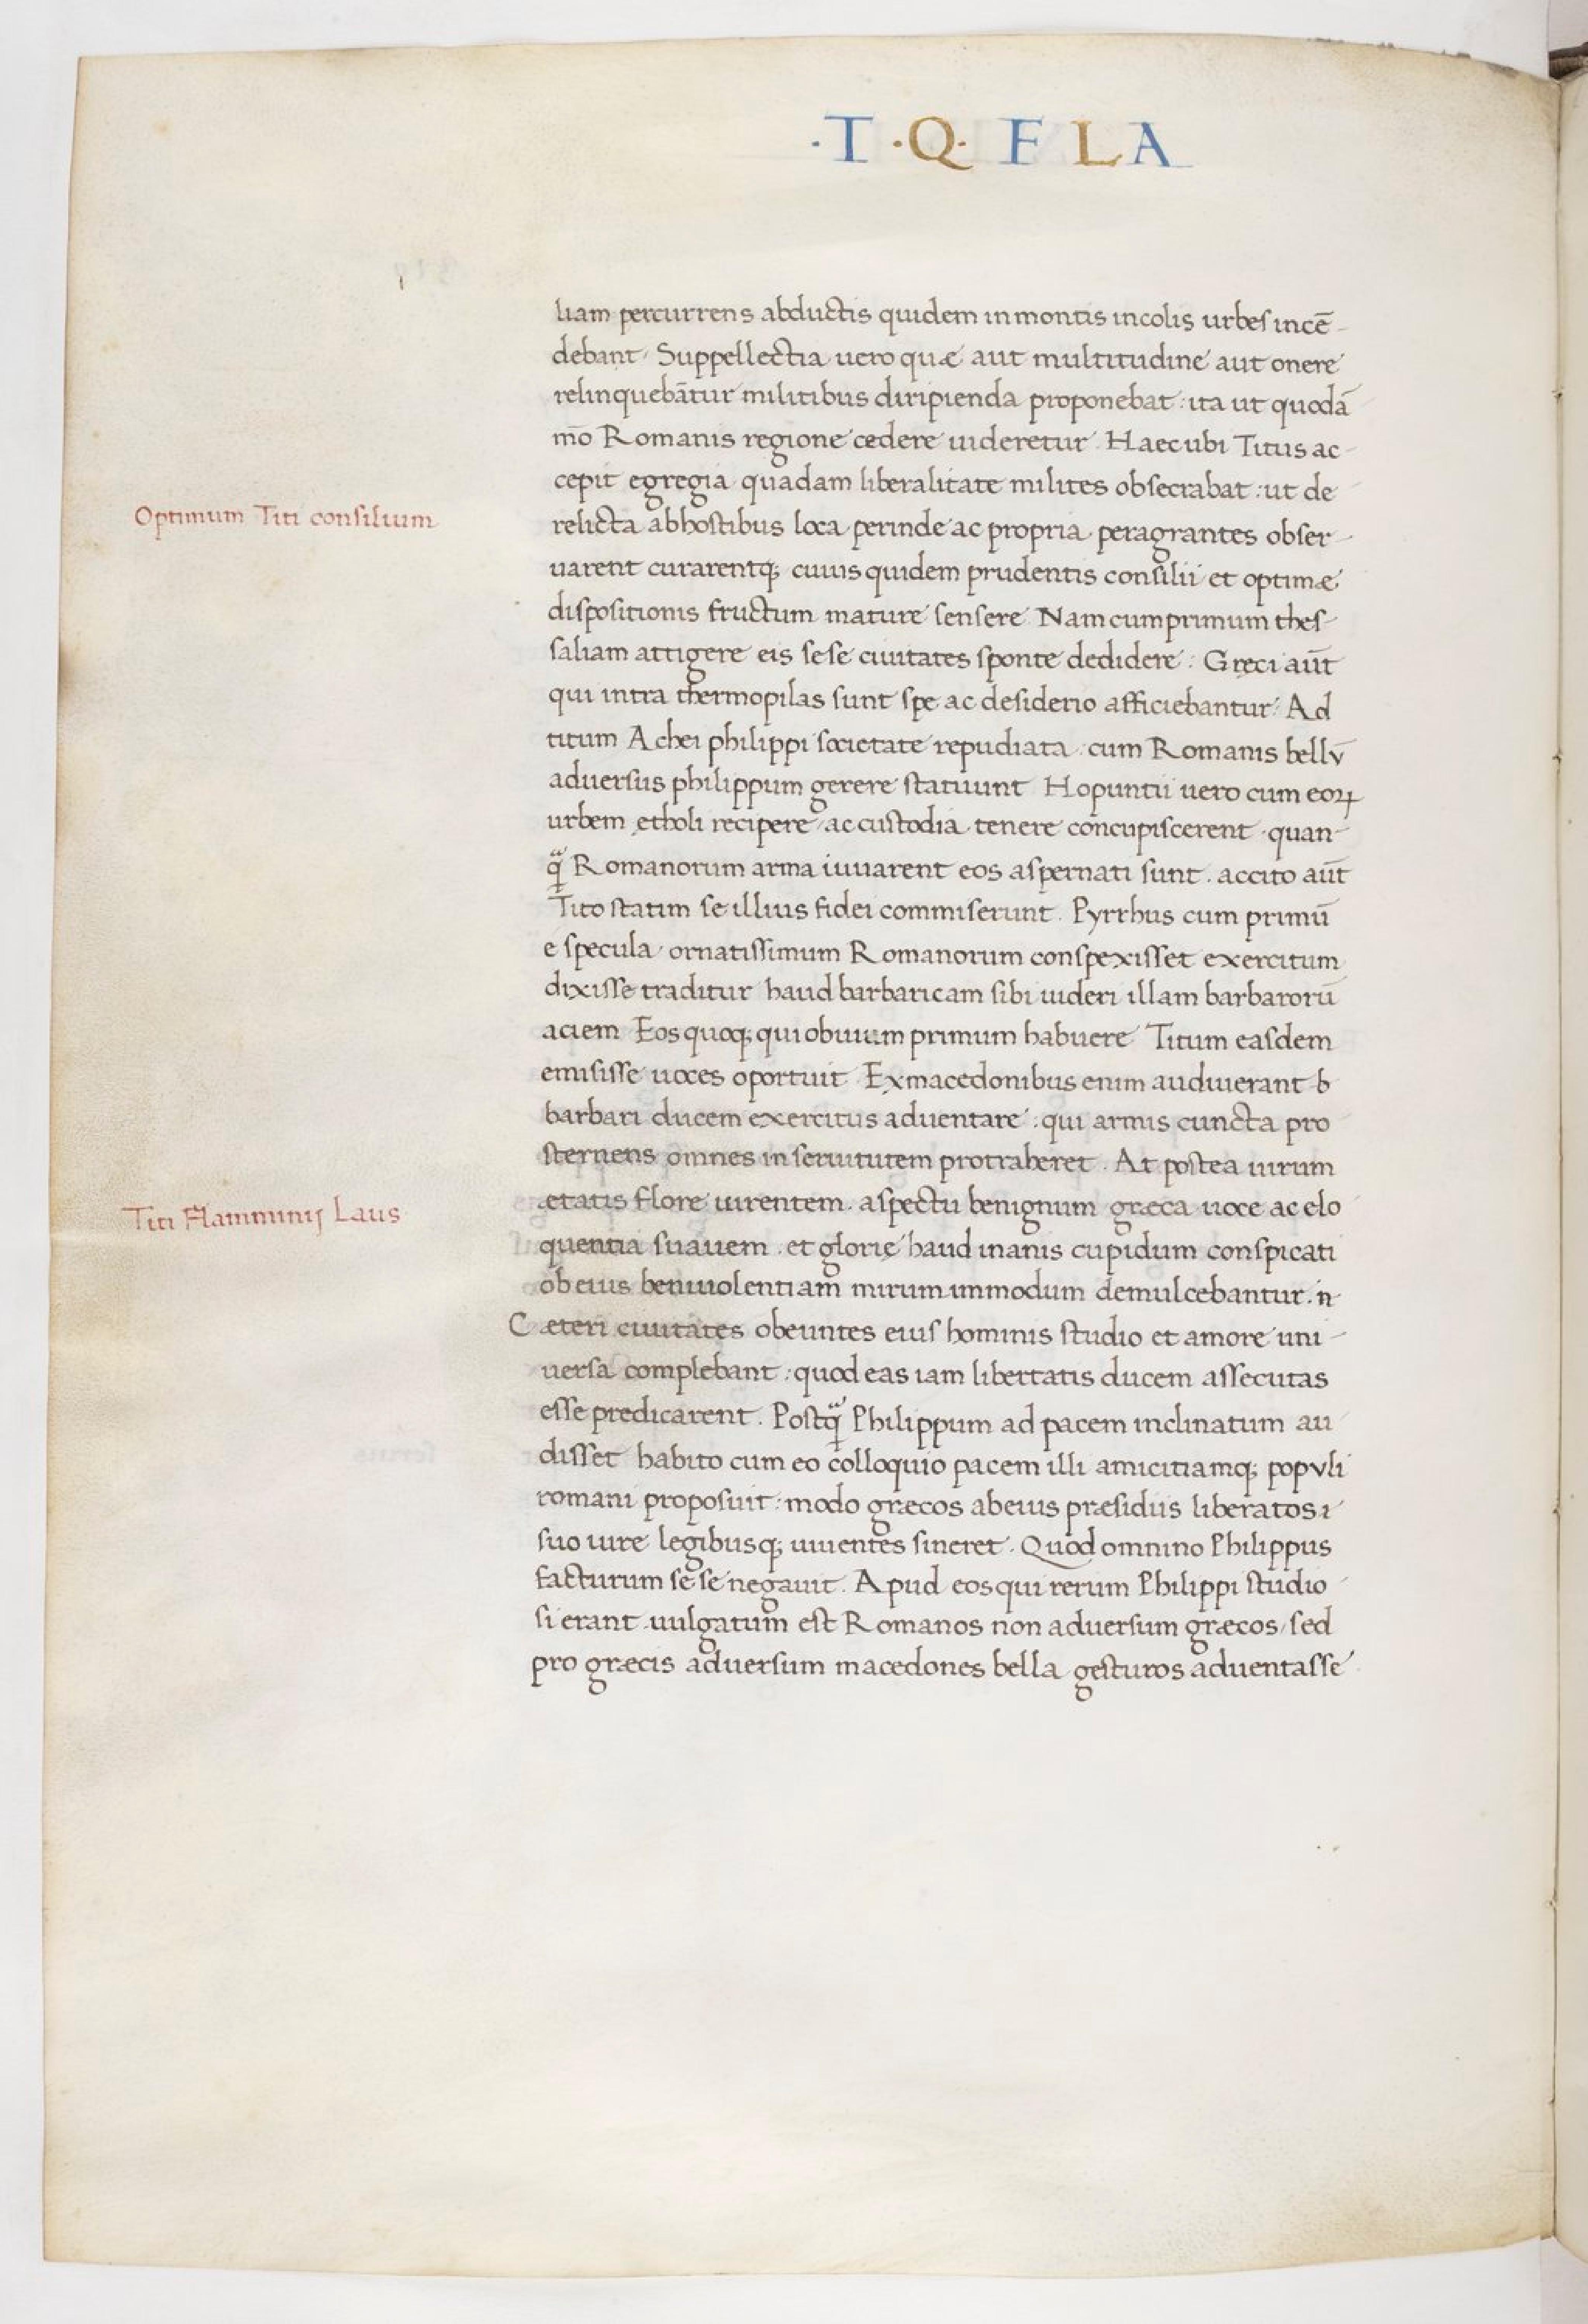 ·T·Q· FLA
liam percurrens abductis quidem in montis incolis urbes incē-
debant. Suppellectia uero quæ aut multitudine aut onere
relinquebātur militibus diripienda proponebat: ita ut quodā
mō Romanis regione cędere uideretur. Haec ubi Titus ac-
cepit egregia quadam liberalitate milites obsecrabat: ut de
Optimum Titi consilium
relicta ab hostibus loca perinde ac propria peragrantes obser-
uarent curarentq; cuius quidem prudentis consilii et optimæ
dispositionis fructum mature sensere. Nam cum primum thes-
saliam attigere eis sese ciuitates sponte dedidere: Gręci aūt
qui intra thermopilas sunt spe ac desiderio afficiebantur. Ad
titum Achei philippi societate repudiata: cum Romanis bellū
aduersus philippum gerere statuunt. Hopuntii uero cum eoꝝ
urbem ętholi recipere ac custodia tenere concupiscerent quan-
q̃ Romanorum arma iuuarent eos aspernati sunt. accito aūt
Tito statim se illius fidei commiserunt. Pyrrhus cum primū
e specula ornatissimum Romanorum conspexisset exercitum
dixisse traditur haud barbaricam sibi uideri illam barbarorū
aciem. Eos quoq; qui obuium primum habuere Titum easdem
emisisse uoces oportuit. Ex macedonibus enim audiuerant b
barbari ducem exercitus aduentare: qui armis cuncta pro
sternens omnes in seruitutem protraheret. At postea uirum
Titi Flaminnij Laus
ætatis flore uirentem. aspectu benignum græca uoce ac elo
quentia suauem. et glorię haud inanis cupidum conspicati
ob eius beniuolentiam mirum immodum demulcebantur. n
Cæteri ciuitates obeuntes eius hominis studio et amore uni-
uersa complebant: quod eas iam libertatis ducem assecutas
esse predicarent. Postq̃ Philippum ad pacem inclinatum au
disset habito cum eo colloquio pacem illi amicitiamq; popvli
romani proposuit: modo græcos ab eius præsidiis liberatos i
suo iure legibusq; uiuentes sineret. Quod omnino Philippus
facturum se se negauit. Apud eos qui rerum Philippi studio
si erant uulgatum est Romanos non aduersum græcos/sed
pro græcis aduersum macedones bella gesturos aduentasse